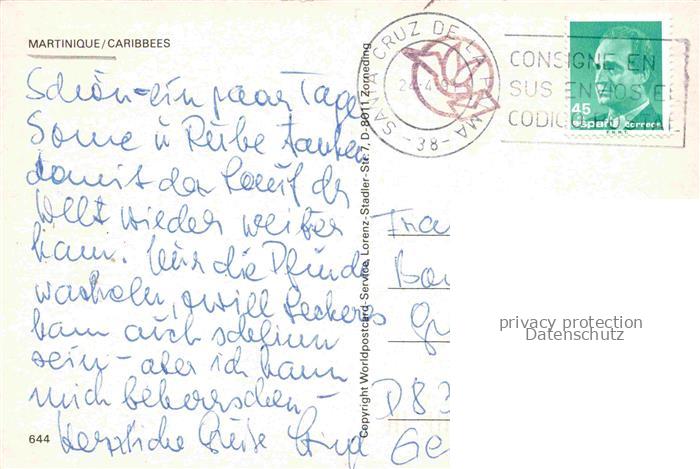 MARTINIQUE/CARIBBEES
Schön - ein paar Tage
Sonne u Ruhe tanken
damit der Lauf der
Welt wieder weiter
kann. Nur die Pfunde
wackeln, zviel Leckeres
kann auch schlimm
sein - aber ich kann
mich beherrschen -
Herzliche Grüße
644
Copyright Worldpostcard-Service, Lorenz-Stadler-Str. 7, D-8011 Zorneding
SANTA CRUZ DE LA PALMA
-38-
CONSIGNE EN
SUS ENVIOS EL
CODIGO
45
españa correos
F.N.M.T.
Fra
D83
Ge
privacy protection
Datenschutz